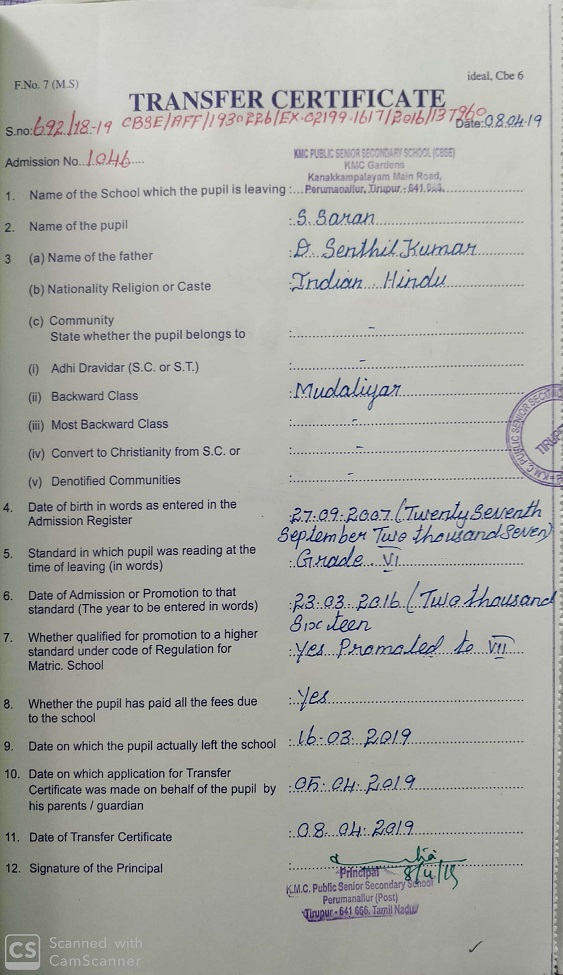 F.No. 7 (M.S)
ideal, Cbe 6
TRANSFER CERTIFICATE
S.no: 692/18-19 CBSE/AFF/1930226/EX-02199-1617/2016/137960 Date: 08.04.19
Admission No. 1046
KMC PUBLIC SENIOR SECONDARY SCHOOL (CBSE)
KMC Gardens
Kanakkampalayam Main Road,
1. Name of the School which the pupil is leaving : Perumanallur, Tirupur - 641 666.
2. Name of the pupil : S. Saran
3 (a) Name of the father : D. Senthil Kumar
(b) Nationality Religion or Caste : Indian Hindu
(c) Community
State whether the pupil belongs to : -
(i) Adhi Dravidar (S.C. or S.T.) : -
(ii) Backward Class : Mudaliyar
(iii) Most Backward Class : -
(iv) Convert to Christianity from S.C. or : -
(v) Denotified Communities : -
4. Date of birth in words as entered in the
Admission Register : 27.09.2007 (Twenty Seventh
September Two thousand Seven)
5. Standard in which pupil was reading at the
time of leaving (in words) : Grade VI
6. Date of Admission or Promotion to that
standard (The year to be entered in words) : 23.03.2016 (Two thousand
Sixteen
7. Whether qualified for promotion to a higher
standard under code of Regulation for : Yes Promoted to VII
Matric. School
8. Whether the pupil has paid all the fees due : Yes
to the school
9. Date on which the pupil actually left the school : 16.03.2019
10. Date on which application for Transfer
Certificate was made on behalf of the pupil by : 05.04.2019
his parents / guardian
11. Date of Transfer Certificate : 08.04.2019
12. Signature of the Principal :
8/4/19
Principal
K.M.C. Public Senior Secondary School
Perumanallur (Post)
Tirupur - 641 666. Tamil Nadu
K.M.C. PUBLIC SENIOR SECOND
TIRUP
CS Scanned with
CamScanner